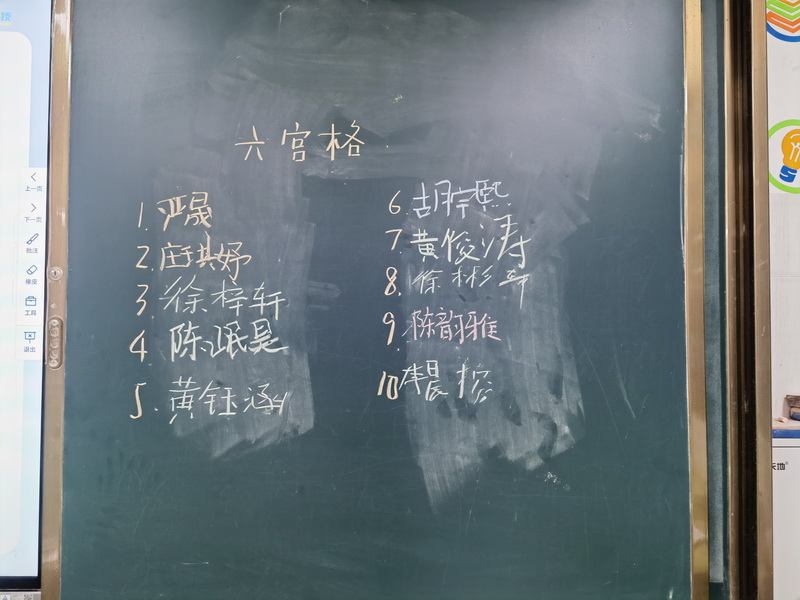 六宫格
1. 严晟
2. 庄琪妤
3. 徐梓轩
4. 陈珉昊
5. 黄钰涵
6. 胡宁熙
7. 黄俊涛
8. 徐彬轩
9. 陈韵雅
10 李晨榕
上一页
下一页
批注
橡皮
工具
退出
天地